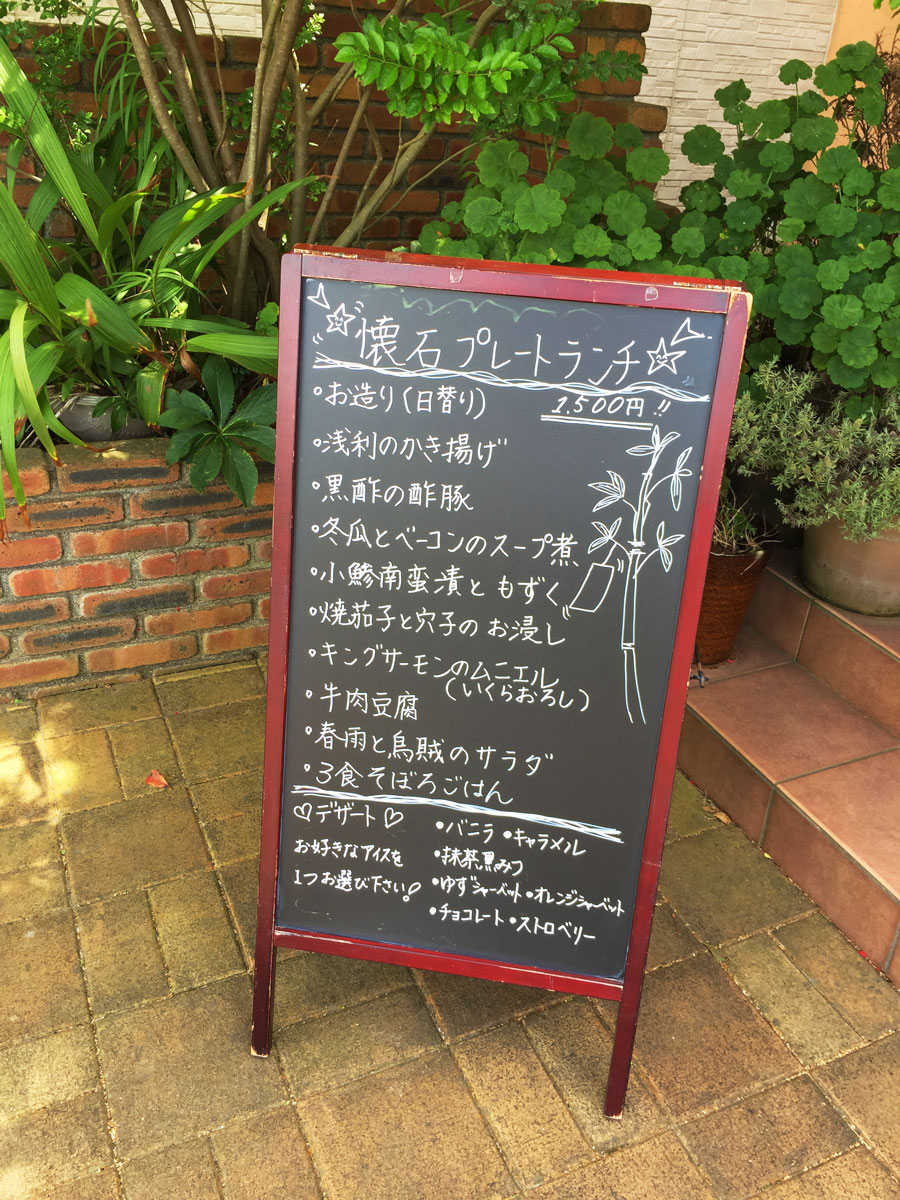 懐石プレートランチ
1,500円!!
・お造り(日替り)
・浅利のかき揚げ
・黒酢の酢豚
・冬瓜とベーコンのスープ煮
・小鯵南蛮漬ともずく
・焼茄子と穴子のお浸し
・キングサーモンのムニエル
(いくらおろし)
・牛肉豆腐
・春雨と烏賊のサラダ
・3食そぼろごはん
♡デザート♡
お好きなアイスを
1つお選び下さい!
・バニラ ・キャラメル
・抹茶黒みつ
・ゆずシャーベット ・オレンジシャーベット
・チョコレート ・ストロベリー